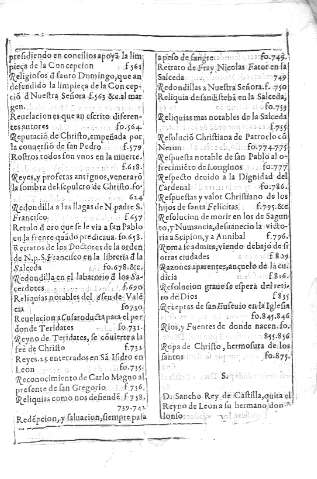 presidiendo en concilios apoya la lim
pieça de la Concepcion f 561
Religiosos d santo Domingo, que an
defendido la limpieça de la Concep
ciō d Nuestra Señora f.563 &c. al mar
gen.
Reuelaciones que an escrito diferen-
tes autores fo.564.
Reputaciō de Christo, empeñada por
la concesiō de san Pedro f.579
Rostros todos son vnos en la muerte.
f.618.
Reyes, y profetas antignos, veneraró
la sombra del sepulcro de Christo. fo.
624
Redondilla a las llagas de N. padre S.
Francisco. f.657
Retulo d oro que se le via a san Pablo
en la frente quādo predicaua. fo.658.
Retratos de los Doctores de la orden
de N.p.S. Francisco en la libreria d la
Salceda fo.678.&c.
Redondilla en el labatorio d los Sa-
cerdotes f.690
Reliquias notables del Aseu de Valē
cia fo730.
Reuelacion a Cusarodusta para el per
don de Teridates fo.731.
Reyno de Teridates, se cōuierte a la
fee de Christo f 733.
Reyes 25 enterrados en Sā. Isidro en
Leon fo.735.
Reconocimiento de Carlo Magno al
presente de san Gregorio f 736.
Reliquias como nos defiendē f 738,
739.742
Redēpcion, y saluacion, siempre pala
a peso de sangre. fo.749.
Retrato de Fray Nicolas Fator en la
Salceda 749
Redondillas a Nuestra Señora. f.750
Reliquia de san Esteba en la Salceda,
fo.753
Reliquias mas notables de la Salceda
f 755
Resoluciō Christiana de Patroclo cō
Neron fo.774.775
Respuesta notable de san Pablo al o-
frecimiēto de Longinos fo.777
Respecto deuido a la Dignidad del
Cardenal fo.786.
Respuestas y valor Christiano de los
hijos de santa Felicitas f.795.&c
Resolucion de morir en los de Sagun
to, y Numancia, desuanecio la victo-
ria a Scipion, y a Annibal f 796.
Roma se admira, viendo debajo de si
otras ciudades f 809
Razones aparentes, anquelo de la cu
dicia f 819
Resolucion graue se espera del reti
ro de Dios f 835
Receptas de san Eusenio en la Iglesia
fo.845.846
Rios, y Fuentes de donde nacen. fo.
855.856
Ropa de Christo, hermosura de los
santos fo.875.
S.
D. Sancho Rey de Castilla, quita el
Reyno de Leon a su hermano don
lonso